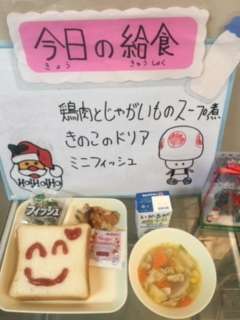 今日の給食
きょう きゅうしょく
鶏肉とじゃがいものスープ煮
きのこのドリア
ミニフィッシュ
HO!HO!HO!
フィッシュ